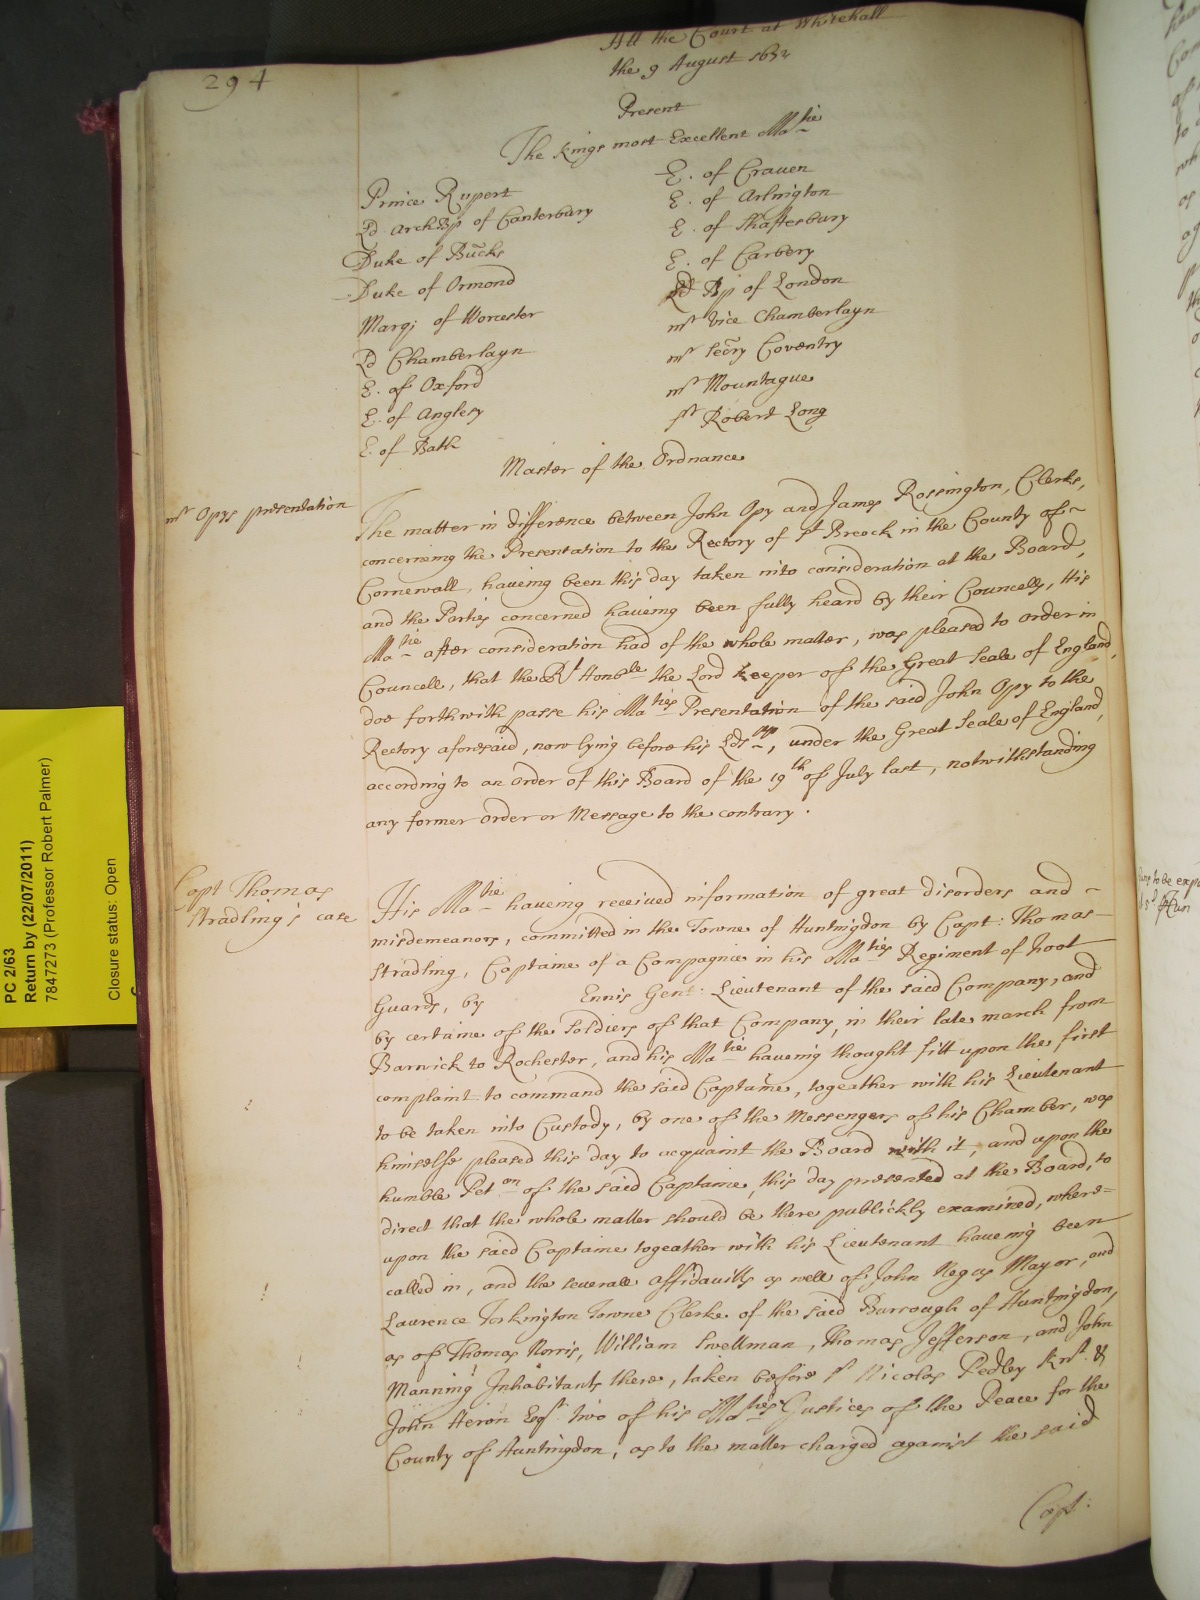 294
Att the Court at Whitehall
the 9 August 1672
Present
The Kings most Excellent Ma.tie
Prince Rupert
Ld ArchBp of Canterbury
Duke of Bucks
Duke of Ormond
Marq: of Worcester
Ld Chamberlayn
E. of Oxford
E. of Anglesy
E. of Bath
E. of Craven
E. of Arlington
E. of Shaftesbury
E. of Carbery
Ld Bp of London
mr Vice Chamberlayn
mr Secry Coventry
mr Mountague
sr Robert Long
Master of the Ordnance
mr Opys presentation
The matter in difference between John Opy and James Rossington, Clerks,
concerning the Presentation to the Rectory of st Breock in the County of
Cornewall, haveing been this day taken into consideration at the Board,
and the Parties concerned haveing been fully heard by their Councell, His
Ma.tie after consideration had of the whole matter, was pleased to order in
Councell, that the Rt Honble the Lord Keeper of the Great Seale of England,
doe forthwith passe his Ma.ties Presentation of the said John Opy to the
Rectory aforesaid, now lying before his Ldspp, under the Great Seale of England,
according to an Order of this Board of the 19th of July last, notwithstanding
any former Order or Message to the contrary.
Capt Thomas
Stradling's case
His Ma.tie haveing received information of great disorders and
misdemeanors, committed in the Towne of Huntingdon by Capt: Thomas
Stradling, Captaine of a Compagnie in his Ma.ties Regiment of Foot
Guards, by Ennis Gent: Lieutenant of the said Company, and
by certaine of the Soldiers of that Company, in their late march from
Barwick to Rochester, and his Ma.tie haveing thought fitt upon the first
complaint to command the said Captaine, togeather with his Lieutenant
to be taken into Custody, by one of the Messengers of his Chamber, was
himselfe pleased this day to acquaint the Board with it, and upon the
humble Peton of the said Captaine, this day presented at the Board, to
direct that the whole matter should be there publickly examined, where=
upon the said Captaine togeather with his Lieutenant haveing been
called in, and the severall Affidavitts as well of John Negus Mayor, and
Laurence Torkington Towne Clerke of the said Burrough of Huntingdon,
as of Thomas Norris, William Swellman, Thomas Jefferson, and John
Manning Inhabitants there, taken before sr Nicolas Pedley Knt. &
John Heron Esqr two of his Ma.ties Justices of the Peace for the
County of Huntingdon, as to the matter charged against the said
Capt:
PC 2/63
Return by (22/07/2011)
7847273 (Professor Robert Palmer)
Closure status: Open